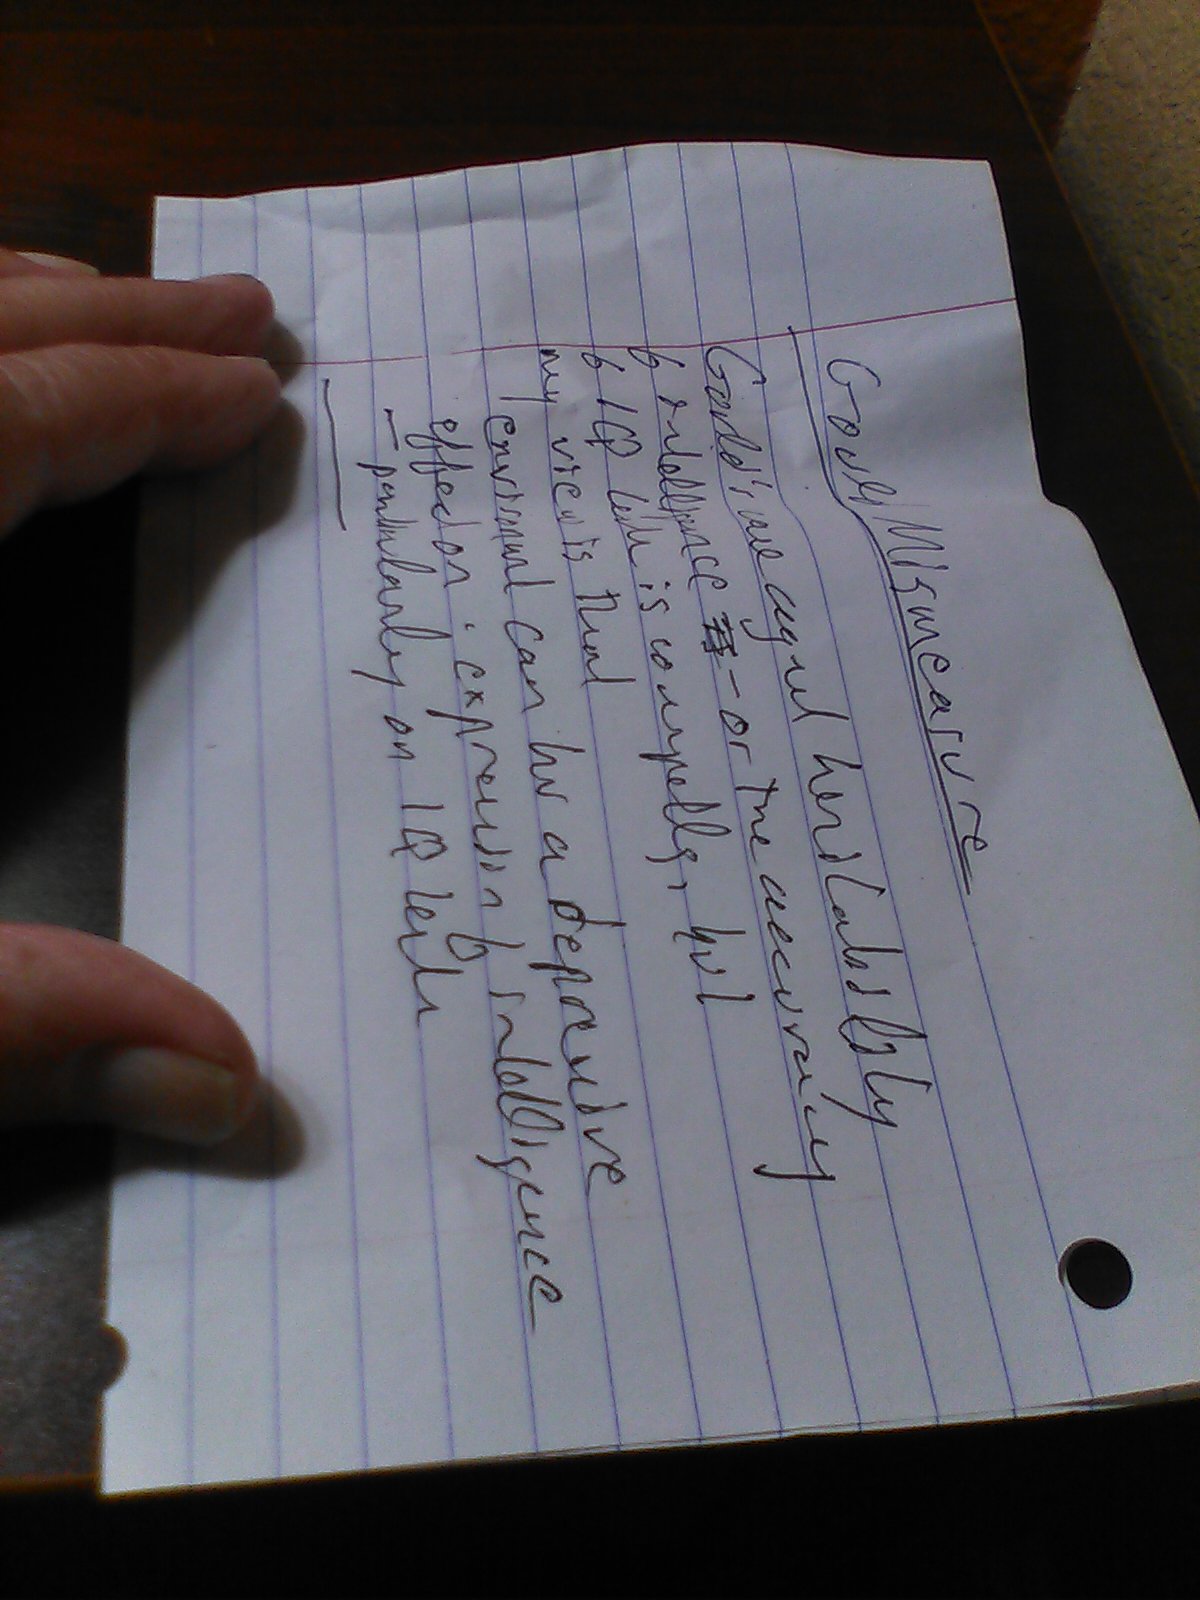 Gould/Mismeasure
Gould's case against heritability
of intelligence - or the accuracy
of IQ tests is compelling, but
my view is that
environment can have a depressive
effect on expression of intelligence
- particularly on IQ tests